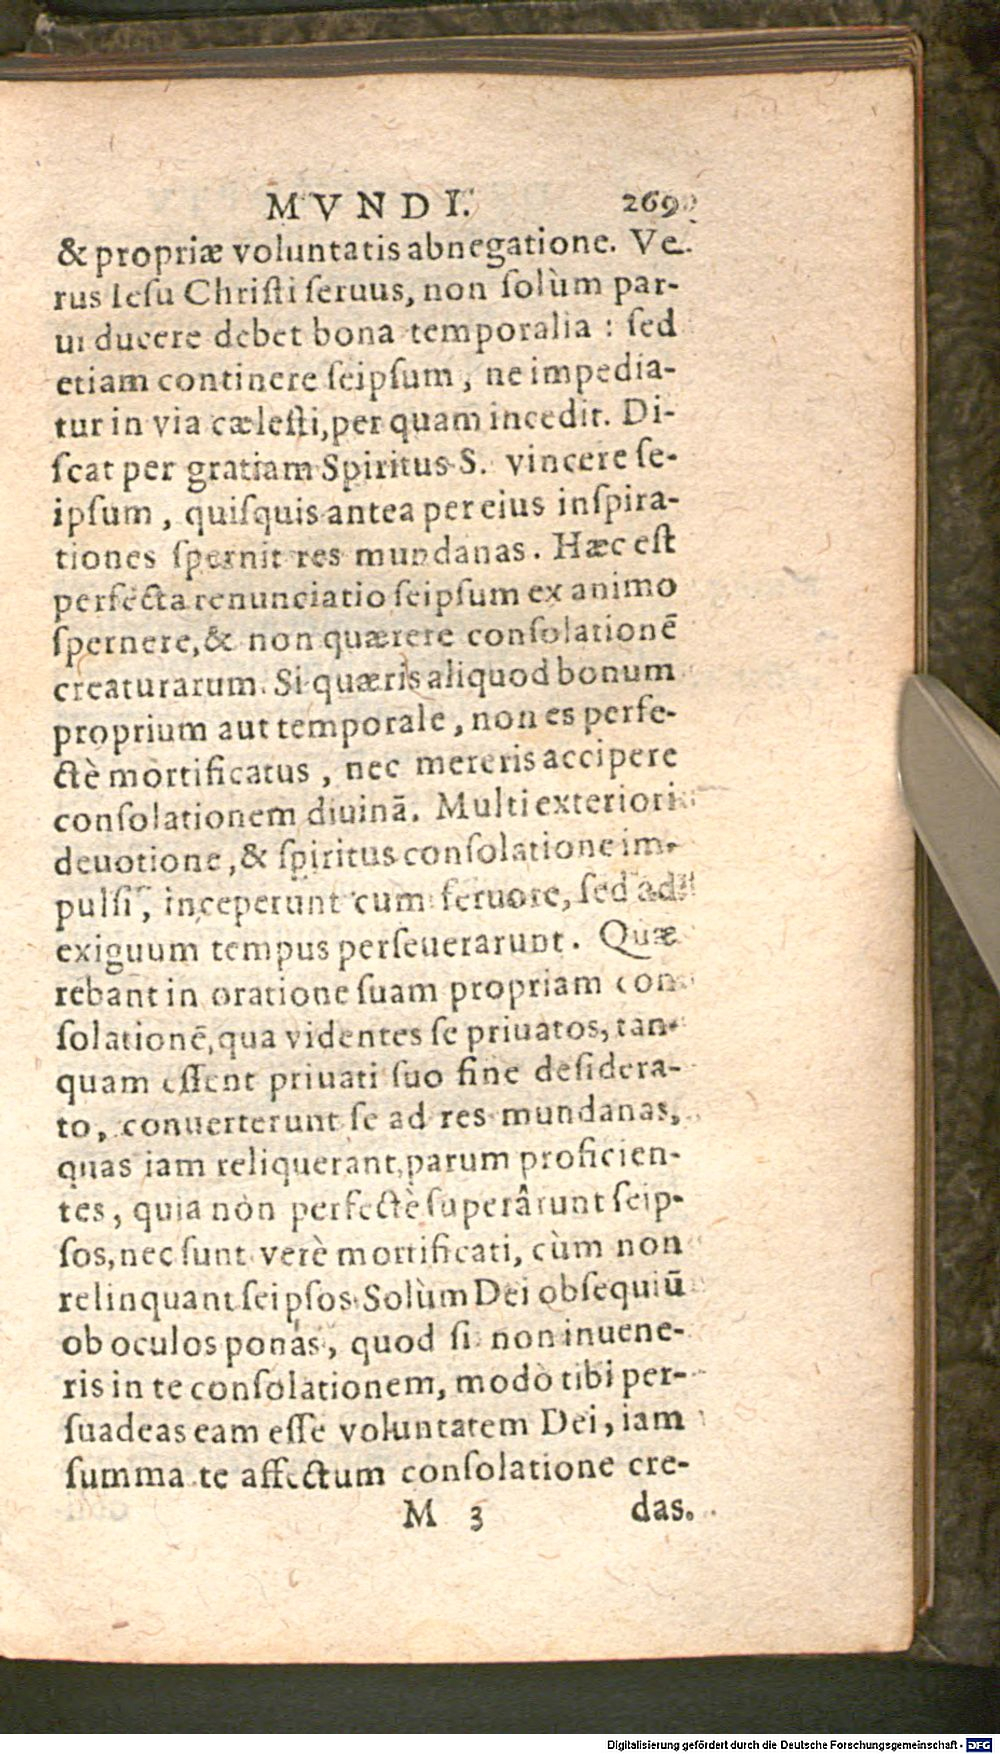 MVNDI. 269
& propriæ voluntatis abnegatione. Ve-
rus Iesu Christi seruus, non solùm par-
ui ducere debet bona temporalia : sed
etiam continere seipsum, ne impedia-
tur in via cælesti, per quam incedit. Di-
scat per gratiam Spiritus S. vincere se-
ipsum, quisquis antea per eius inspira-
tiones spernit res mundanas. Hæc est
perfecta renunciatio seipsum ex animo
spernere, & non quærere consolationẽ
creaturarum. Si quæris aliquod bonum
proprium aut temporale, non es perfe-
ctè mortificatus, nec mereris accipere
consolationem diuinã. Multi exteriori
deuotione, & spiritus consolatione im-
pulsi, inceperunt cum feruore, sed ad
exiguum tempus perseuerarunt. Quæ
rebant in oratione suam propriam con
solationẽ, qua videntes se priuatos, tan-
quam essent priuati suo fine desidera-
to, conuerterunt se ad res mundanas,
quas iam reliquerant, parum proficien-
tes, quia non perfectè superârunt seip-
sos, nec sunt verè mortificati, cùm non
relinquant seipsos. Solùm Dei obsequiũ
ob oculos ponas, quod si non inuene-
ris in te consolationem, modò tibi per-
suadeas eam esse voluntatem Dei, iam
summa te affectum consolatione cre-
M 3 das.
Digitalisierung gefördert durch die Deutsche Forschungsgemeinschaft - DFG